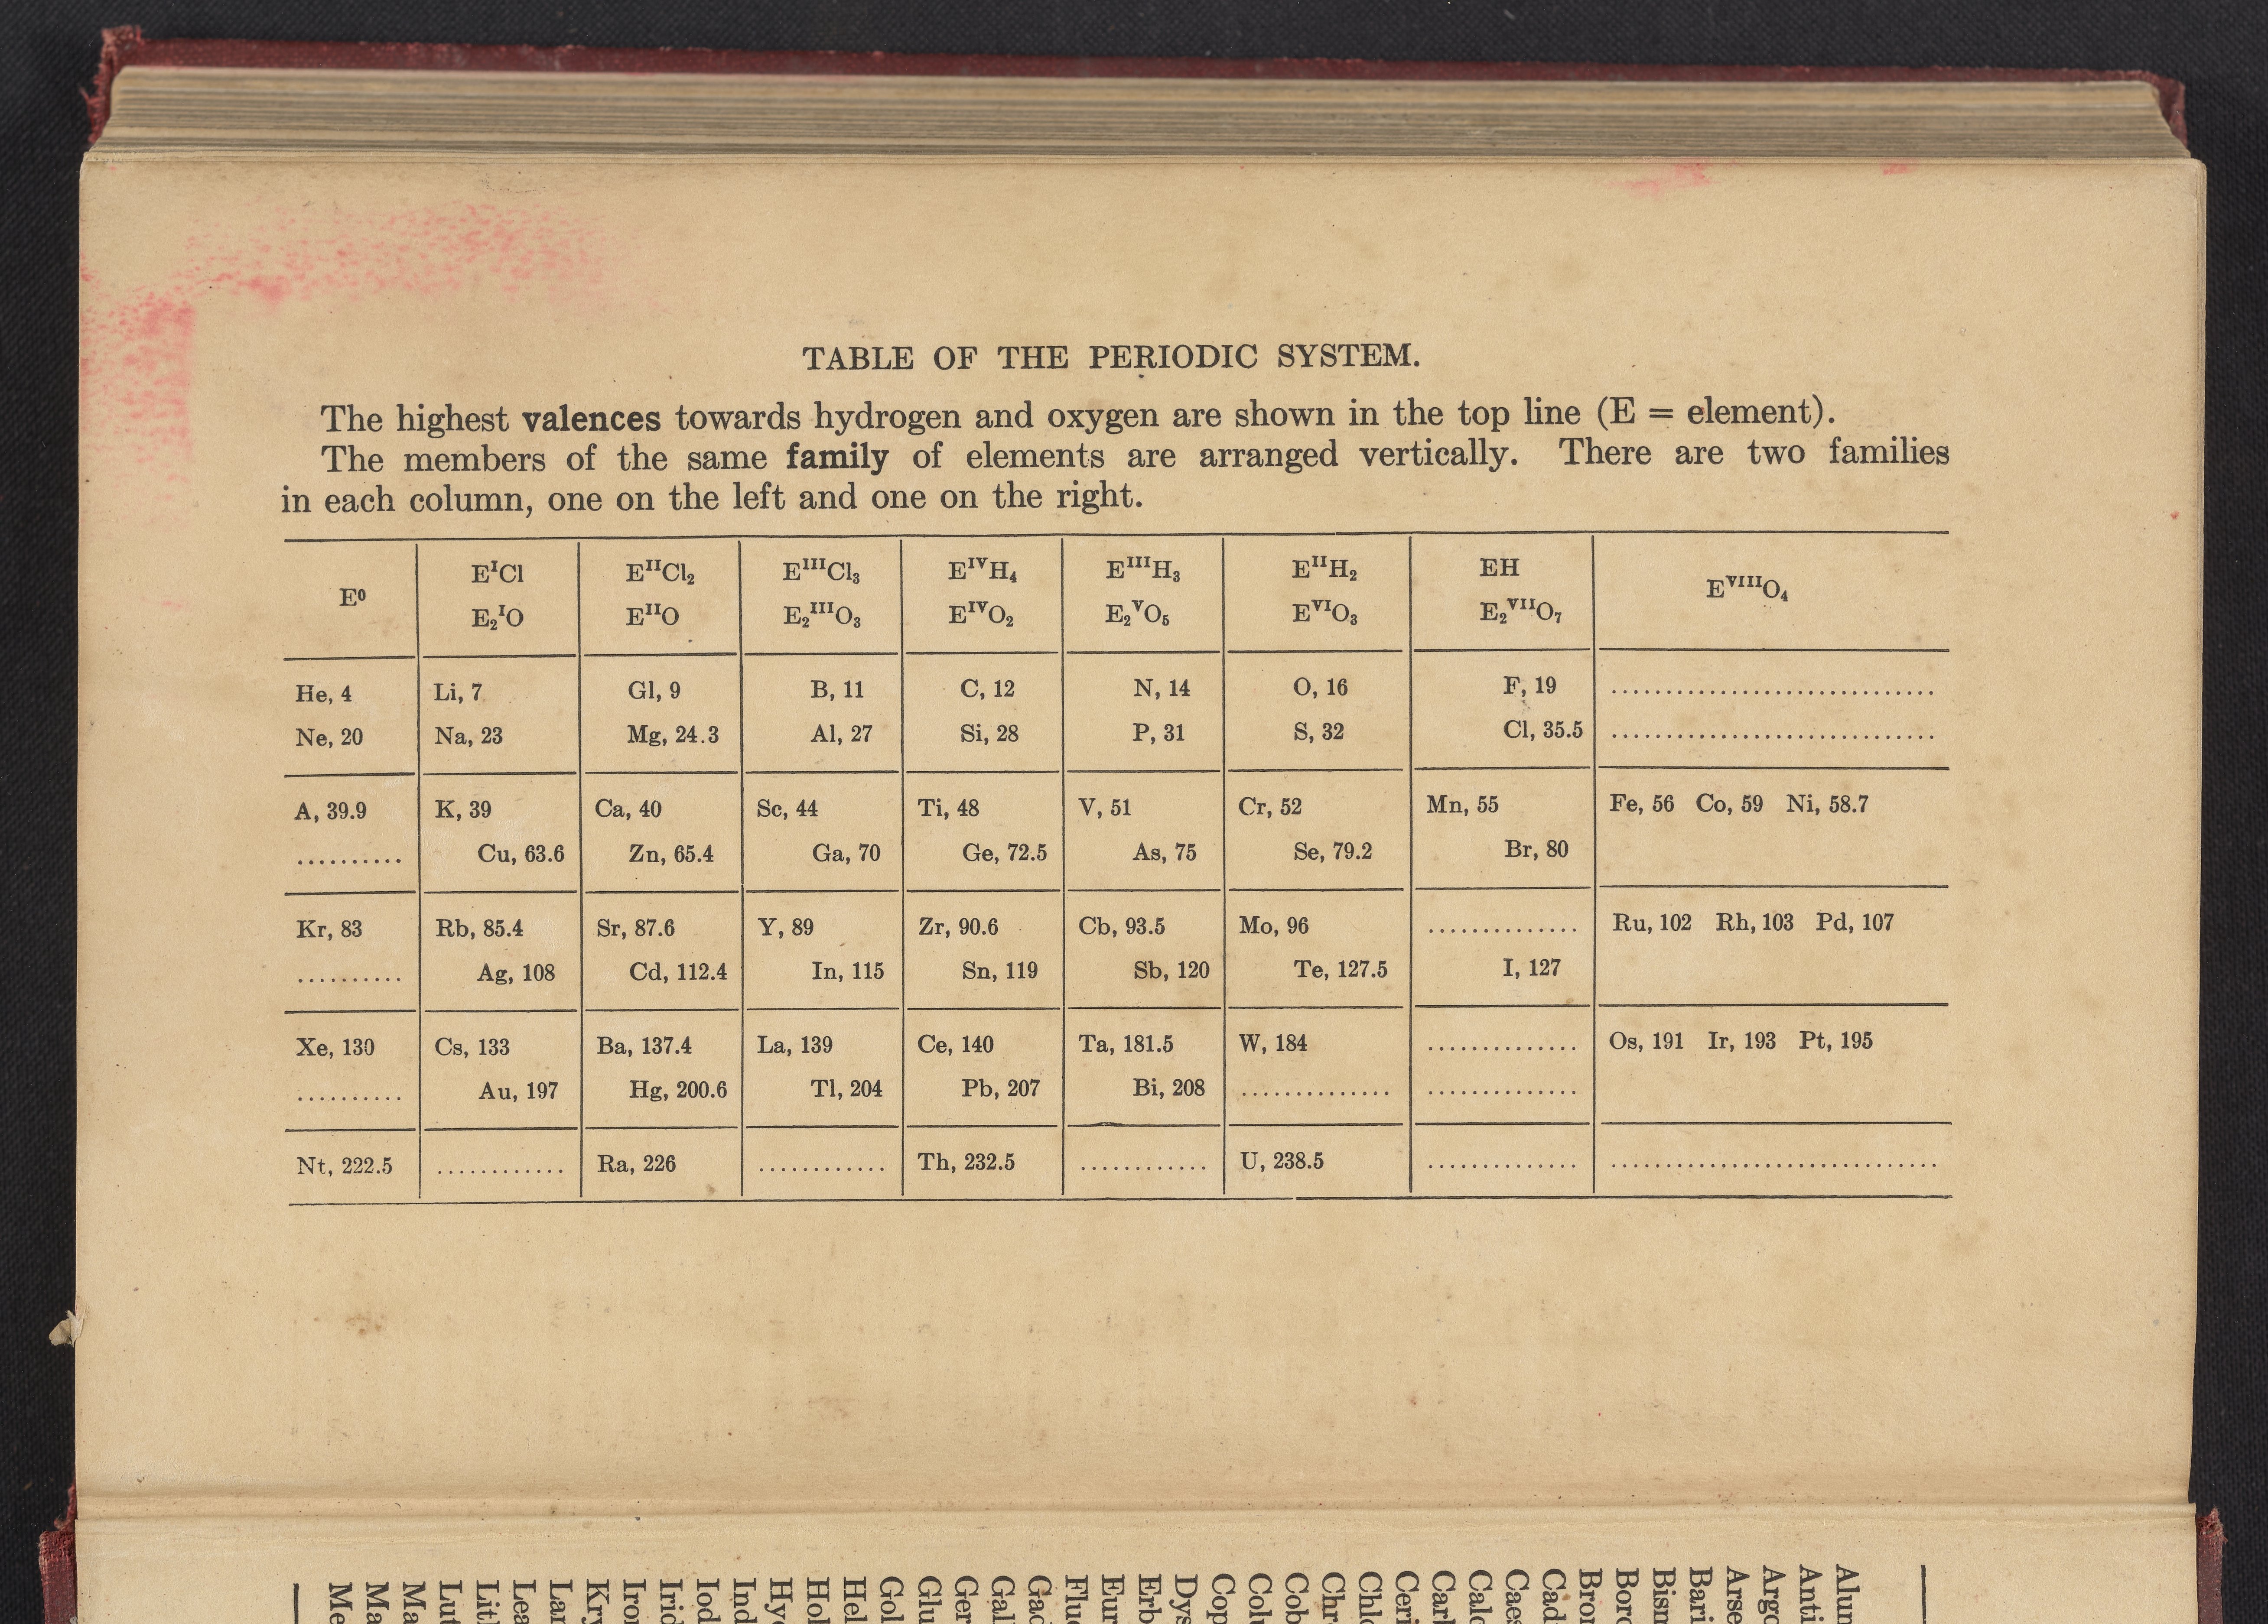 TABLE OF THE PERIODIC SYSTEM.
The highest valences towards hydrogen and oxygen are shown in the top line (E = element).
The members of the same family of elements are arranged vertically. There are two families
in each column, one on the left and one on the right.
E⁰ EᴵCl EᴵᴵCl₂ EᴵᴵᴵCl₃ EᴵⱽH₄ EᴵᴵᴵH₃ EᴵᴵH₂ EH EⱽᴵᴵᴵO₄
E₂ᴵO EᴵᴵO E₂ᴵᴵᴵO₃ EᴵⱽO₂ E₂ⱽO₅ EⱽᴵO₃ E₂ⱽᴵᴵO₇
He, 4 Li, 7 Gl, 9 B, 11 C, 12 N, 14 O, 16 F, 19 ..............................
Ne, 20 Na, 23 Mg, 24.3 Al, 27 Si, 28 P, 31 S, 32 Cl, 35.5 ..............................
A, 39.9 K, 39 Ca, 40 Sc, 44 Ti, 48 V, 51 Cr, 52 Mn, 55 Fe, 56 Co, 59 Ni, 58.7
.......... Cu, 63.6 Zn, 65.4 Ga, 70 Ge, 72.5 As, 75 Se, 79.2 Br, 80
Kr, 83 Rb, 85.4 Sr, 87.6 Y, 89 Zr, 90.6 Cb, 93.5 Mo, 96 .............. Ru, 102 Rh, 103 Pd, 107
.......... Ag, 108 Cd, 112.4 In, 115 Sn, 119 Sb, 120 Te, 127.5 I, 127
Xe, 130 Cs, 133 Ba, 137.4 La, 139 Ce, 140 Ta, 181.5 W, 184 .............. Os, 191 Ir, 193 Pt, 195
.......... Au, 197 Hg, 200.6 Tl, 204 Pb, 207 Bi, 208 .............. ..............
Nt, 222.5 ............ Ra, 226 ............ Th, 232.5 ............ U, 238.5 .............. ..............................
Alun
Anti
Argo
Arse
Bari
Bism
Boro
Bron
Cad
Caes
Calc
Carl
Ceri
Chlo
Chr
Cob
Colu
Cop
Dys
Erb
Eur
Fluo
Gad
Gal
Ger
Glu
Gol
Hel
Hol
Hy
Ind
Iod
Irid
Iron
Kry
Lan
Lea
Lit
Lut
Ma
Ma
Me